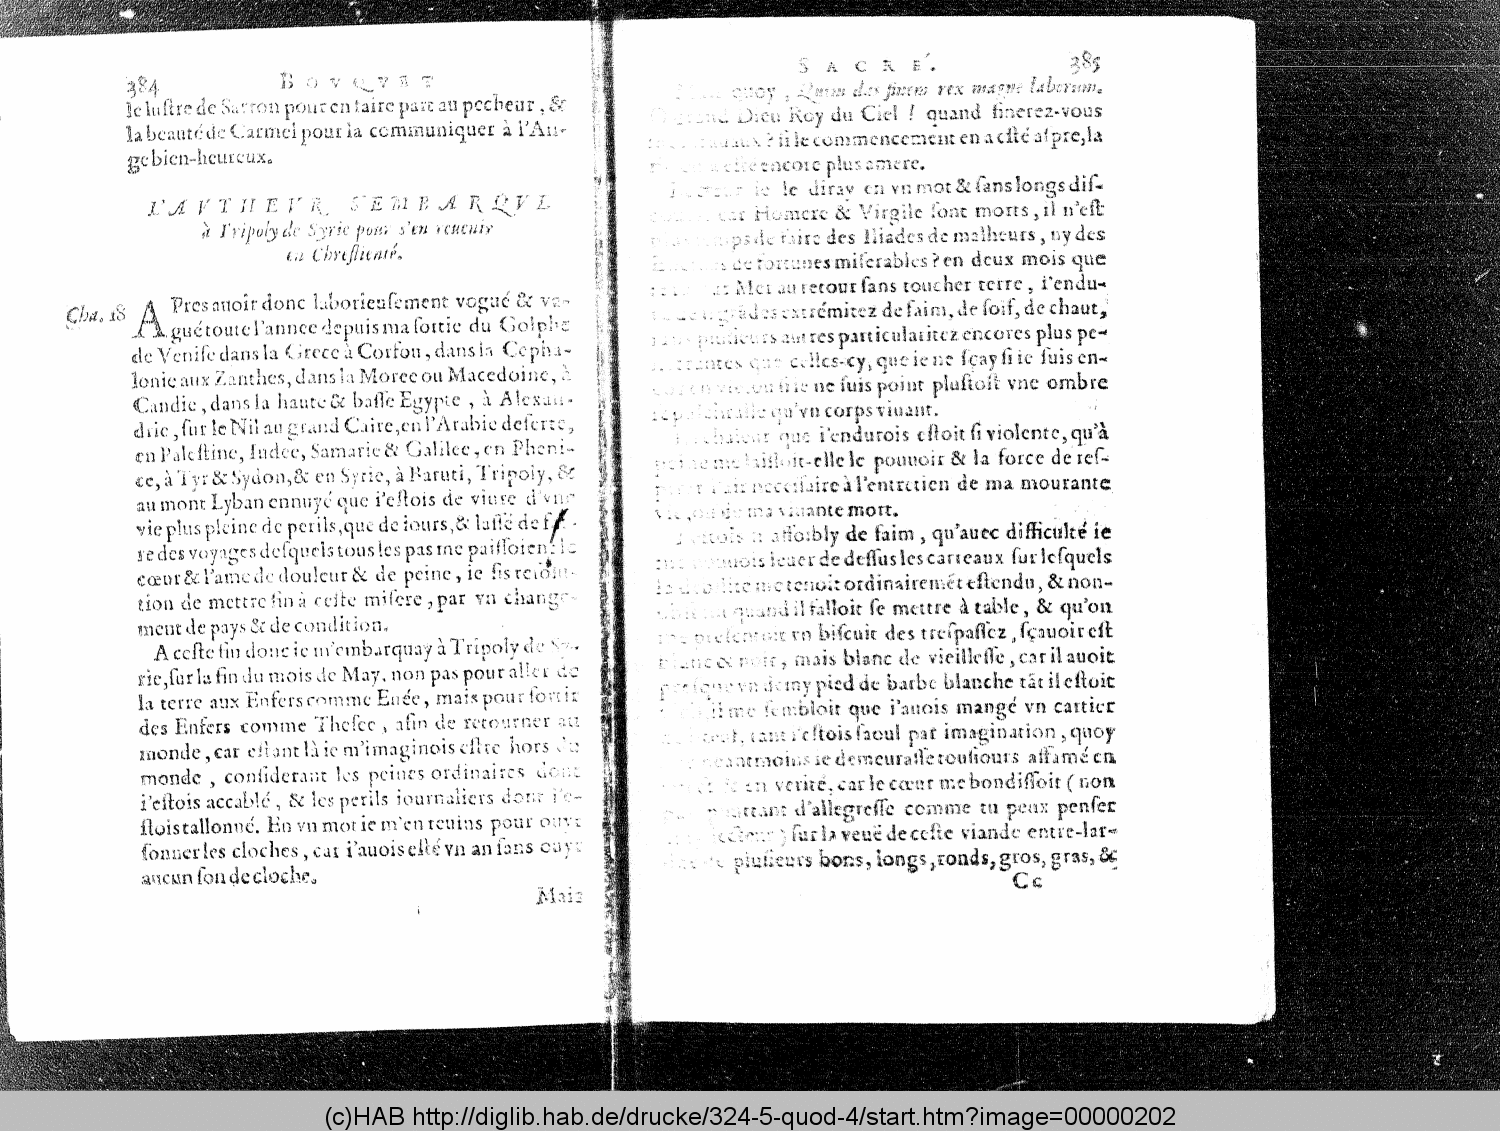 384 BOVQVET
le lustre de Sarron pour en faire part au pecheur, &
la beauté de Carmel pour la communiquer à l'An-
ge bien-heureux.
L'AVTHEVR S'EMBARQVE
à Tripoly de Syrie pour s'en reuenir
en Chrestienté.
Cha. 18
APres auoir donc laborieusement vogué & va-
gué toute l'annee depuis ma sortie du Golphe
de Venise dans la Grece à Corfou, dans la Cepha-
lonie aux Zanthes, dans la Moree ou Macedoine, à
Candie, dans la haute & basse Egypte, à Alexan-
drie, sur le Nil au grand Caire, en l'Arabie deserte,
en Palestine, Iudee, Samarie & Galilee, en Pheni-
ce, à Tyr & Sydon, & en Syrie, à Baruti, Tripoly, &
au mont Lyban ennuyé que i'estois de viure d'vne
vie plus pleine de perils, que de iours, & lassé de f
re des voyages desquels tous les pas me paissoient le
cœur & l'ame de douleur & de peine, ie fis resolu-
tion de mettre fin à ceste misere, par vn change-
ment de pays & de condition.
A ceste fin donc ie m'embarquay à Tripoly de Sy-
rie, sur la fin du mois de May, non pas pour aller de
la terre aux Enfers comme Enée, mais pour sortir
des Enfers comme Thesee, afin de retourner au
monde, car estant là ie m'imaginois estre hors du
monde, considerant les peines ordinaires dont
i'estois accablé, & les perils iournaliers dont i'e-
stois tallonné. En vn mot ie m'en reuins pour ouyr
sonner les cloches, car i'auois esté vn an sans ouyr
aucun son de cloche.
Mais
SACRE'. 385
quoy, Quem das finem rex magne laborum.
Dieu Roy du Ciel! quand finerez-vous
? si le commencement en a esté aspre, la
encore plus amere.
ie le diray en vn mot & sans longs dis-
car Homere & Virgile sont morts, il n'est
de faire des Iliades de malheurs, ny des
de fortunes miserables? en deux mois que
Mer au retour sans toucher terre, i'endu-
grādes extrémitez de faim, de soif, de chaut,
plusieurs autres particularitez encores plus pe-
que celles-cy, que ie ne sçay si ie suis en-
en vie, ou si ie ne suis point plustost vne ombre
qu'vn corps viuant.
chaleur que i'endurois estoit si violente, qu'à
peine me laissoit-elle le pouuoir & la force de res-
l'air necessaire à l'entretien de ma mourante
vie, ou de ma viuante mort.
I'estois si affoibly de faim, qu'auec difficulté ie
leuer de dessus les carreaux sur lesquels
me tenoit ordinairemét estendu, & non-
quand il falloit se mettre à table, & qu'on
me presentoit vn biscuit des trespassez, sçauoir est
blanc & noir, mais blanc de vieillesse, car il auoit
presque vn demy pied de barbe blanche tāt il estoit
il me sembloit que i'auois mangé vn cartier
tant i'estois saoul par imagination, quoy
neantmoins ie demeurasse tousiours affamé en
en verité, car le cœur me bondissoit (non
pourtant d'allegresse comme tu peux penser
Lecteur) sur la veuë de ceste viande entre-lar-
de plusieurs bons, longs, ronds, gros, gras, &
Cc
(c)HAB http://diglib.hab.de/drucke/324-5-quod-4/start.htm?image=00000202